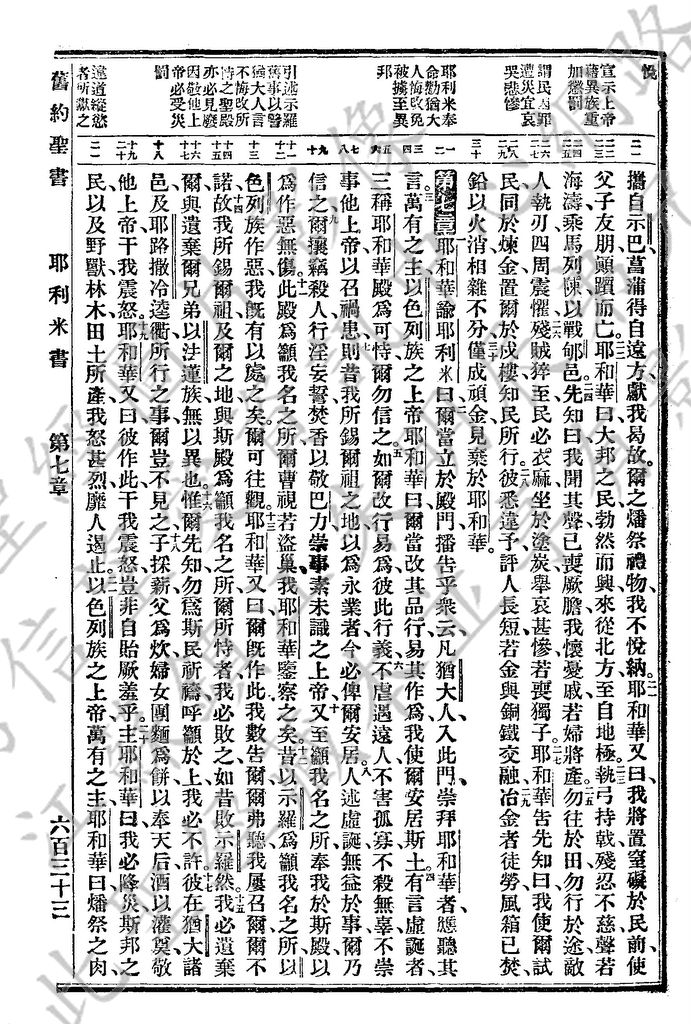 舊約聖書 耶利米書 第七章 六百三十三
悅
宣示上帝
藉異族重
加懲罰
謂民因罪
遭災宜哀
哭悲慘
耶利米奉
命勸猶大
人悔改免
被擄至異
邦
引述示羅
舊事以警
猶大人言
不悔改所
恃之聖殿
亦必見廢
因敬他上
帝必受災
罰
違道縱慾
者所獻之
攜自示巴菖蒲得自遠方獻我曷故爾之燔祭禮物我不悅納耶和華又曰我將置窒礙於民前使
父子友朋顛躓而亡耶和華曰大邦之民勃然而興來從北方至自地極執弓持戟殘忍不慈聲若
海濤乘馬列陳以戰郇邑先知曰我聞其聲已喪厥膽我懷憂戚若婦將產勿往於田勿行於途敵
人執刃四周震懼殘賊猝至民必衣麻坐於塗炭舉哀甚慘若喪獨子耶和華告先知曰我使爾試
民同於煉金置爾於戍樓知民所行彼悉違予評人長短若金與銅鐵交融冶金者徒勞風箱已焚
鉛以火消相雜不分僅成頑金見棄於耶和華
第七章 耶和華諭耶利米曰爾當立於殿門播告乎衆云凡猶大人入此門崇拜耶和華者應聽其
言萬有之主以色列族之上帝耶和華曰爾當改其品行易其作爲我使爾安居斯土有言虛誕者
三稱耶和華殿爲可恃爾勿信之如爾改行易爲彼此行義不虐遇遠人不害孤寡不殺無辜不崇
事他上帝以召禍患則昔我所錫爾祖之地以爲永業者今必俾爾安居人述虛誕無益於事爾乃
信之爾攘竊殺人行淫妄誓焚香以敬巴力崇事素未識之上帝又至籲我名之所奉我於斯殿以
爲作惡無傷此殿爲籲我名之所爾曹視若盜巢我耶和華鑒察之矣昔以示羅爲籲我名之所以
色列族作惡我旣有以處之矣爾可往觀耶和華又曰爾旣作此我數告爾爾弗聽我屢召爾爾不
諾故我所錫爾祖及爾之地與斯殿爲籲我名之所爾所恃者我必敗之如昔敗示羅然我必遺棄
爾與遺棄爾兄弟以法蓮族無以異也惟爾先知勿爲斯民祈禱呼籲於上我必不許彼在猶大諸
邑及耶路撒冷逵衢所行之事爾豈不見之子採薪父爲炊婦女團麵爲餅以奉天后酒以灌奠敬
他上帝干我震怒耶和華又曰彼作此干我震怒豈非自貽厥羞乎主耶和華曰我必降災斯邦之
民以及野獸林木田土所產我怒甚烈靡人遏止以色列族之上帝萬有之主耶和華曰燔祭之肉